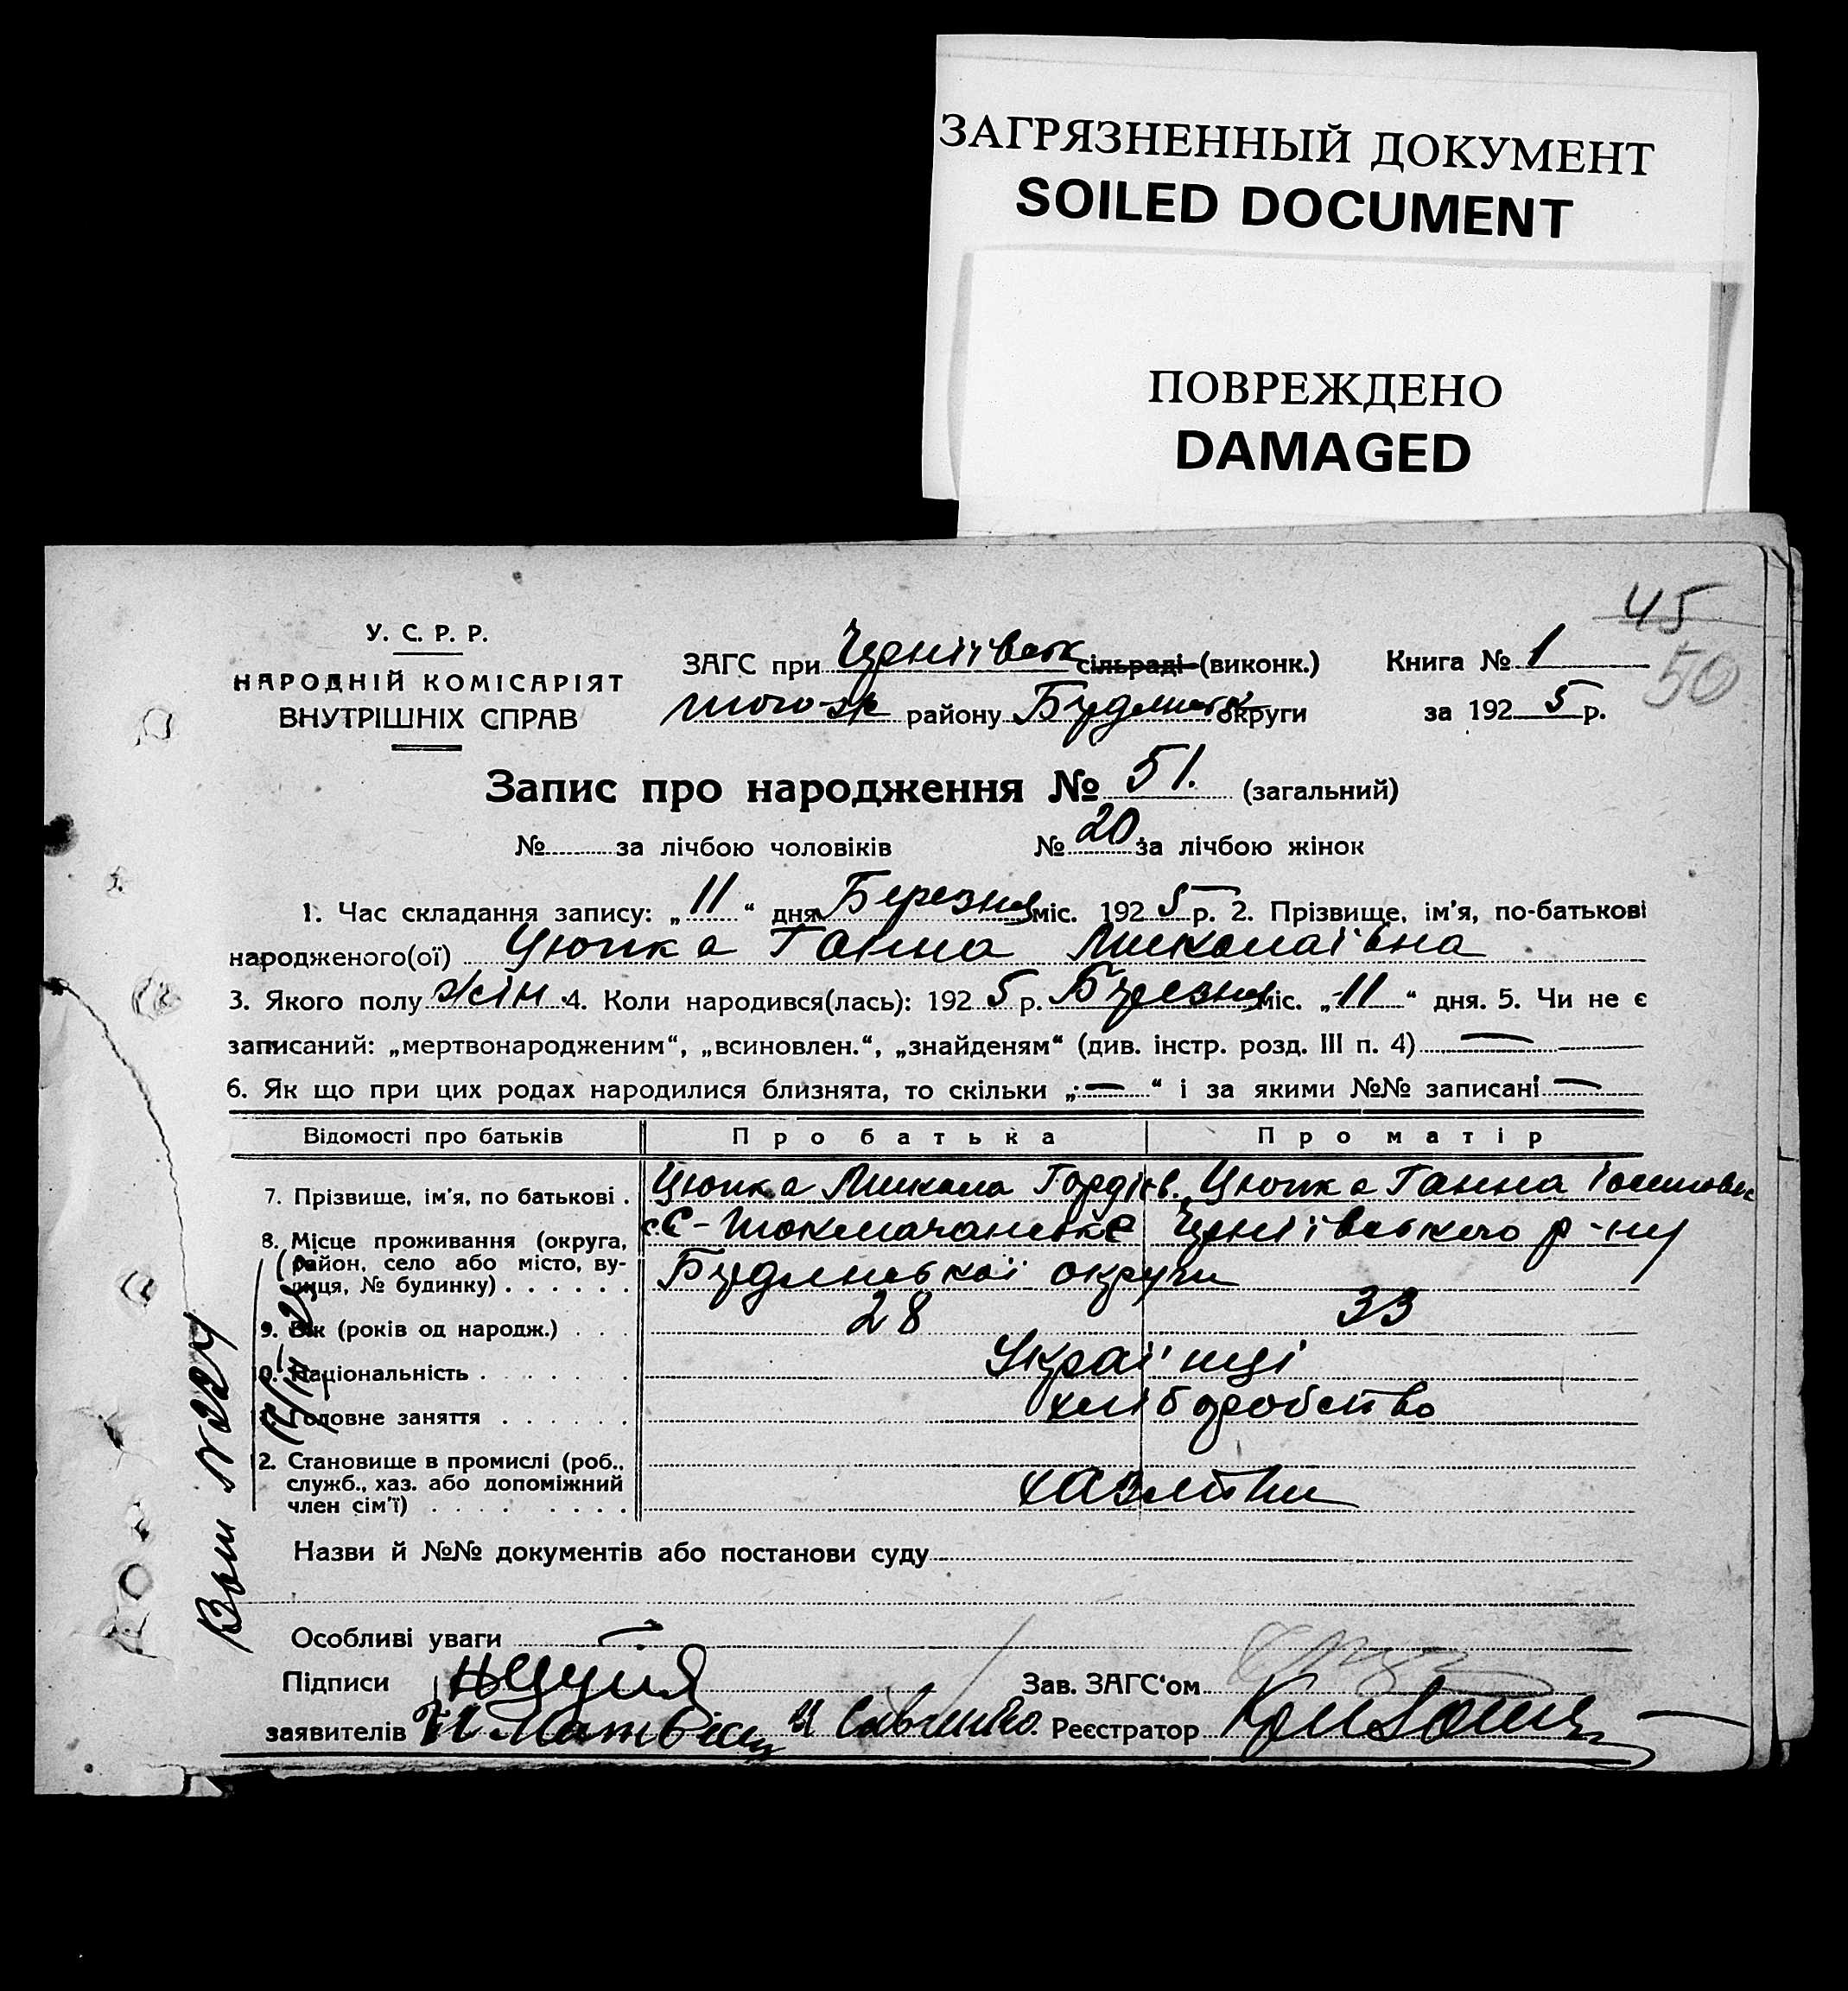 ЗАГРЯЗНЕННЫЙ ДОКУМЕНТ
SOILED DOCUMENT
ПОВРЕЖДЕНО
DAMAGED
45
50
У. С. Р. Р.
НАРОДНІЙ КОМІСАРІЯТ
ВНУТРІШНІХ СПРАВ
ЗАГС при Черніївськ сільраді (виконк.) Книга № 1
того-ж району Бердянськ округи за 1925 р.
Запис про народження № 51. (загальний)
№ за лічбою чоловіків № 20 за лічбою жінок
1. Час складання запису: „11“ дня Березня міс. 1925 р. 2. Прізвище, ім'я, по-батькові
народженого(ої) Цюпка Ганна Миколаївна
3. Якого полу жін. 4. Коли народився(лась): 1925 р. Березня міс. „11“ дня. 5. Чи не є
записаний: „мертвонародженим“, „всиновлен.“, „знайденям“ (див. інстр. розд. III п. 4) —
6. Як що при цих родах народилися близнята, то скільки „—“ і за якими №№ записані —
Відомості про батьків Про батька Про матір
7. Прізвище, ім'я, по батькові . Цюпка Микола Гордієв. Цюпка Ганна
8. Місце проживання (округа, район, село або місто, вулиця, № будинку) . . . . . .
с. Є-Токмачанське Черніївського р-ну
Бердянської округи
9. Вік (років од народж.) . . . 28 33
Національність . . . . . . . Українці
Головне заняття . . . . . . хліборобство
2. Становище в промислі (роб.,
служб., хаз. або допоміжний
член сім'ї) . . . . . . . . хазяїни
Назви й №№ документів або постанови суду
Особливі уваги —
Підписи Зав. ЗАГС'ом
заявителів Реєстратор
№ 224